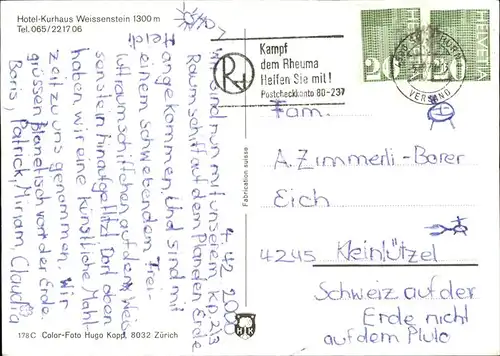 Hotel-Kurhaus Weissenstein 1300 m
Tel. 065/221706
4 42 2000
Wir sind nun mit unserem KP 2\3
Raumschiff auf dem Planden Erde
angekommen, Und sind mit
einem schwebendem Drei-
luftraumschiffchen auf den Weis
senstein hinaufgeflitzt Dort oben
haben wir eine künstliche Mahl-
zeit zu uns genommen. Wir
grüssen Planetisch von der Erde.
Boris, Patrick, Miriam, Claudia
178C Color-Foto Hugo Kopp, 8032 Zürich
Fabrication suisse
Kampf
dem Rheuma
Helfen Sie mit!
Postcheckkonto 80-237
VERSAND
20
20
HELVETIA
Fam.
A. Zimmerli-Borer
Eich
4245 Kleinlützel
Schweiz auf der
Erde nicht
auf dem Pluto